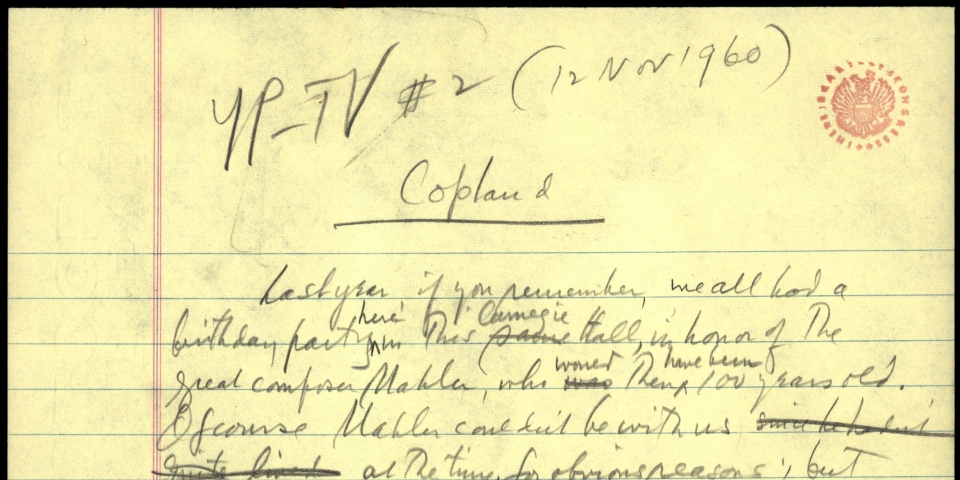 YP-TV #2 (12 Nov 1960)
Copland
Last year if you remember, we all had a
birthday party here in this same Carnegie Hall, in honor of the
great composer Mahler, who was would then have been 100 years old.
Of course Mahler couldn't be with us since he hadn't
quite lived at the time, for obvious reasons; but